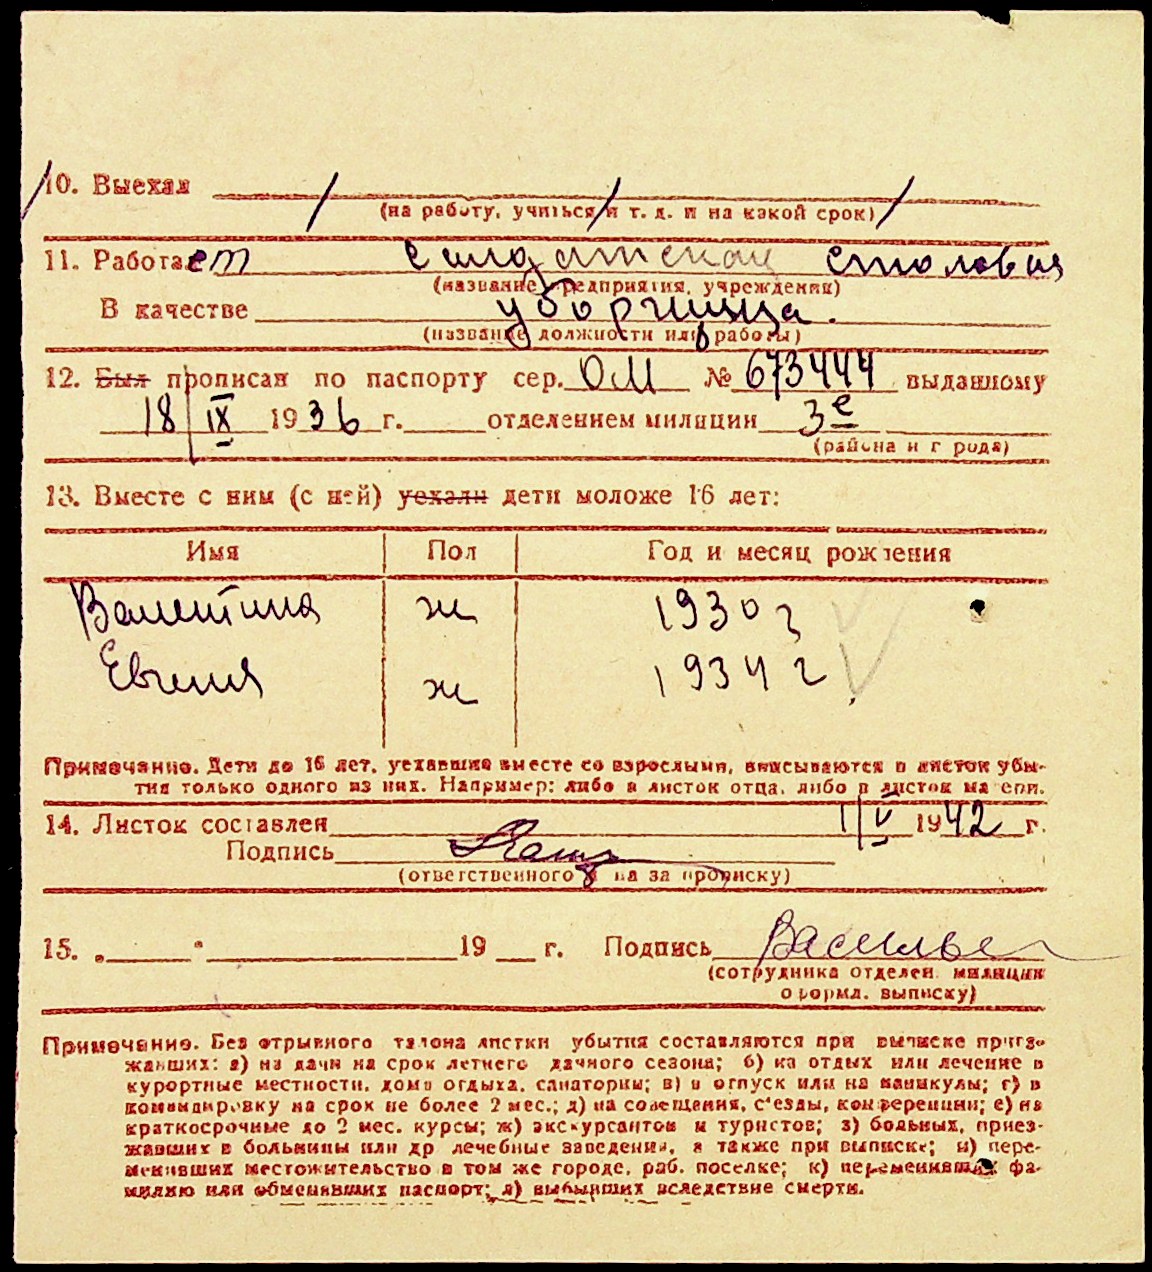 10. Выехал
(на работу, учиться и т. д. и на какой срок)
11. Работает солдатская столовая
(название предприятия, учреждения)
В качестве уборщица.
(название должности или работы)
12. Был прописан по паспорту сер. ОМ № 673444 выданному
18/IX 1936 г. отделением милиции 3е
(района и города)
13. Вместе с ним (с ней) уехали дети моложе 16 лет:
Имя Пол Год и месяц рождения
Валентина ж 1930 г
Евгения ж 1934 г
Примечание. Дети до 16 лет, уехавшие вместе со взрослыми, вписываются в листок убы-
тия только одного из них. Например: либо в листок отца, либо в листок матери.
14. Листок составлен 1/V 1942 г.
Подпись
(ответственного за прописку)
15. „ " 19 г. Подпись Василье
(сотрудника отделен. милиции
оформл. выписку)
Примечание. Без отрывного талона листки убытия составляются при выписке приез-
жавших: а) на дачи на срок летнего дачного сезона; б) на отдых или лечение в
курортные местности, дома отдыха, санатории; в) в отпуск или на каникулы; г) в
командировку на срок не более 2 мес.; д) на совещания, съезды, конференции; е) на
краткосрочные до 2 мес. курсы; ж) экскурсантов и туристов; з) больных, приез-
жавших в больницы или др лечебные заведения, а также при выписке; и) пере-
менивших местожительство в том же городе, раб. поселке; к) переменивших фа-
милию или обменивших паспорт; л) выбывших вследствие смерти.